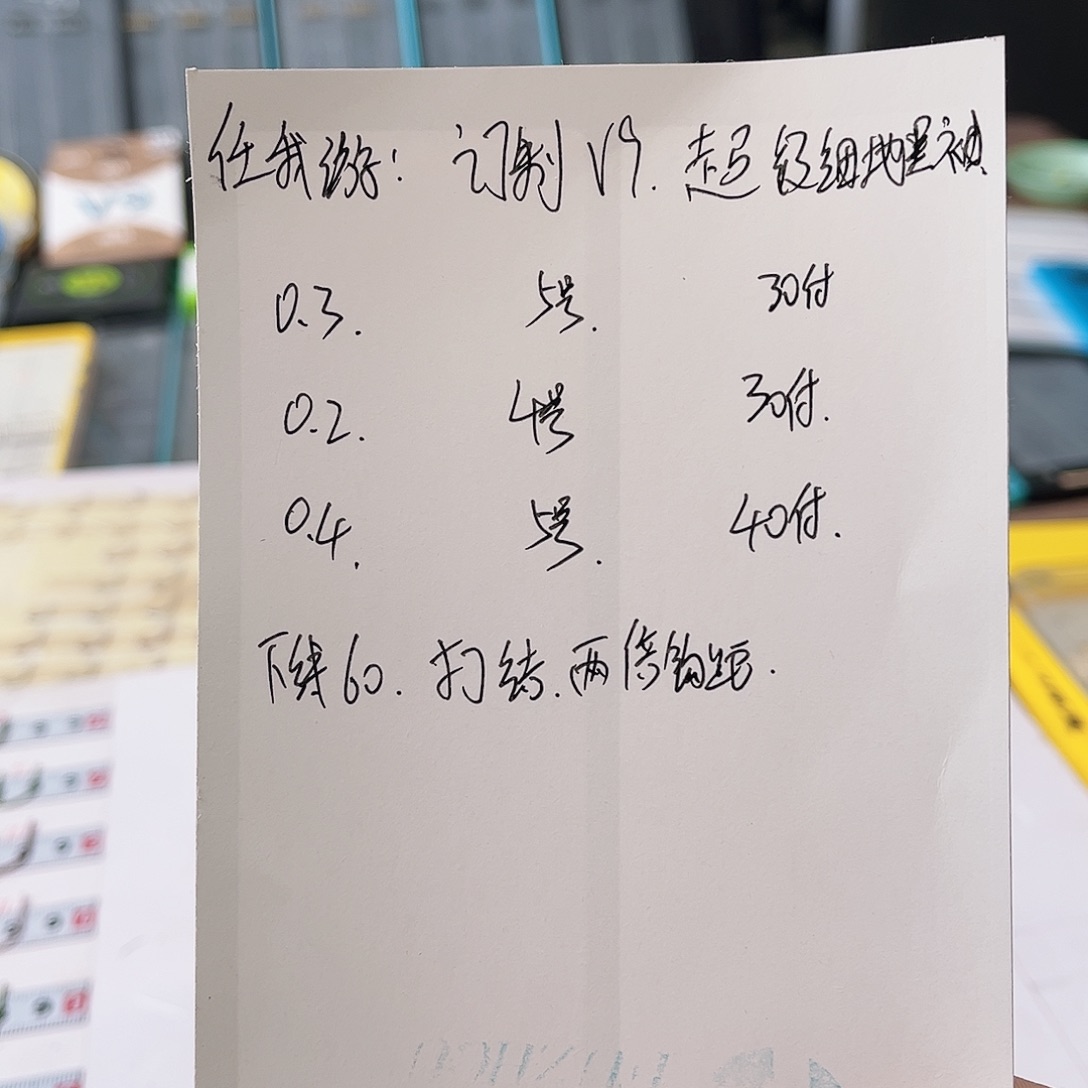 任我游：订制V9.超级细地黑袖
0.3. 5号. 30付
0.2. 4号 30付.
0.4. 5号. 40付.
下线60.打结.两倍钩距.